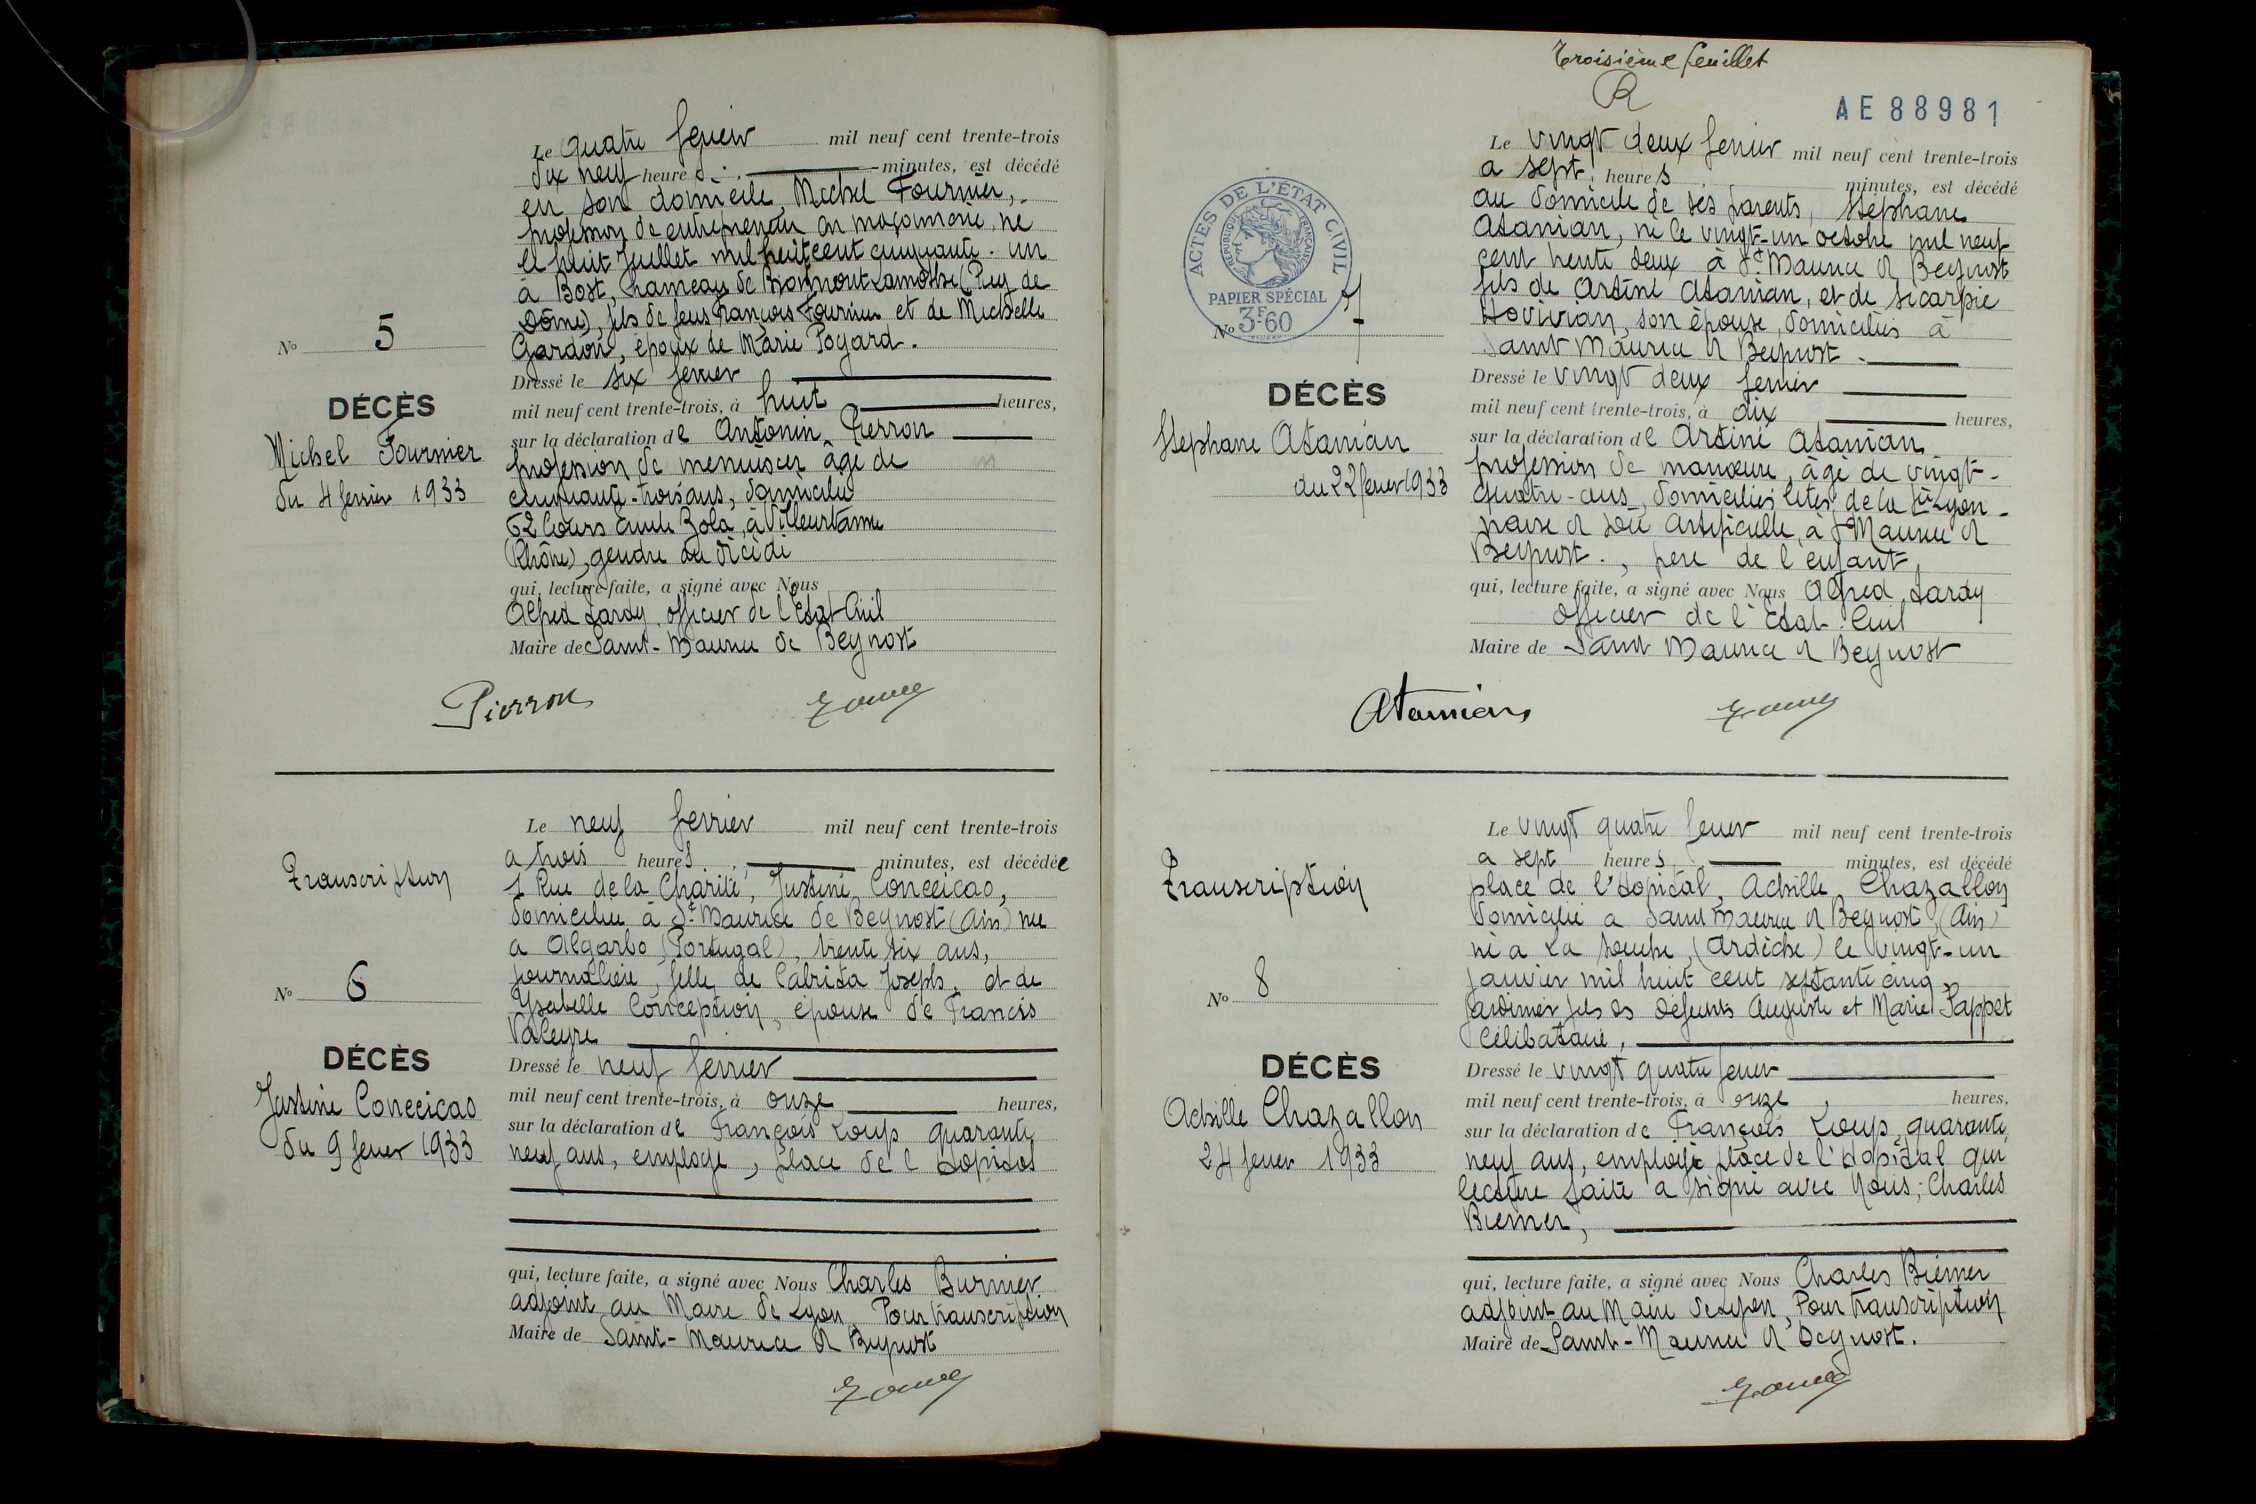 Le quatre fevrier mil neuf cent trente-trois
dix neuf heures minutes, est décédé
en son domicile, Michel Fournier,
profession de entrepreneur en maçonnerie, né
le huit Juillet mil huit cent cinquante-un
à Bost, hameau de Lamothe (Puy de
Dôme), fils de feus François Fournier et de Michelle
Gardon, époux de Marie Pogard.
No 5
Dressé le six fevrier
DÉCÈS
mil neuf cent trente-trois, à huit heures,
Michel Fournier
sur la déclaration de Antonin Pierron
du 4 fevrier 1933
profession de menuisier âgé de
cinquante-trois ans, domicilié
62 Cours Emile Zola, à Villeurbanne
(Rhône), gendre du décédé
qui, lecture faite, a signé avec Nous
Alfred Lardy, officier de l'Etat Civil
Maire de Saint-Maurice de Beynost
Pierron
Le neuf fevrier mil neuf cent trente-trois
a trois heures minutes, est décédée
Transcription
1 Rue de la Charité, Justine Conceicao,
domiciliée à St Maurice de Beynost (Ain) née
a Algarbo (Portugal), trente six ans,
journalière, fille de Cabrita Joseph, et de
No 6
Ysabelle Conception, épouse de Francis
Valeyre
DÉCÈS
Dressé le neuf fevrier
Justine Conceicao
mil neuf cent trente-trois, à onze heures,
du 9 fevrier 1933
sur la déclaration de François Loup quarante
neuf ans, employé, place de l'Hopital
qui, lecture faite, a signé avec Nous Charles Burnier
adjoint au Maire de Lyon, Pour transcription
Maire de Saint-Maurice de Beynost
Troisième feuillet
AE 88981
Le vingt deux fevrier mil neuf cent trente-trois
a sept heures minutes, est décédé
ACTES DE L'ÉTAT CIVIL
RÉPUBLIQUE FRANÇAISE
PAPIER SPÉCIAL
3F60
au domicile de ses parents, Stéphane
Atamian, né le vingt-un octobre mil neuf
cent trente deux à St Maurice de Beynost
fils de Artine Atamian, et de Sicarpie
No 7
Hovivian, son épouse, domiciliés à
Saint Maurice de Beynost.
DÉCÈS
Dressé le vingt deux fevrier
mil neuf cent trente-trois, à dix heures,
Stephane Atamian
sur la déclaration de Artine Atamian
du 22 fevrier 1933
profession de manœuvre, âgé de vingt-
quatre-ans, domicilié cités de la Cie Lyon-
naise de Soie Artificielle, à St Maurice de
Beynost., père de l'enfant,
qui, lecture faite, a signé avec Nous Alfred Lardy
officier de l'Etat-Civil
Maire de Saint Maurice de Beynost
Atamian
Le vingt quatre fevrier mil neuf cent trente-trois
a sept heures minutes, est décédé
Transcription
place de l'Hopital, Achille Chazallon
domicilié a Saint Maurice de Beynost (Ain)
né a La Souche, (Ardèche) le vingt-un
janvier mil huit cent septante cinq,
No 8
Jardinier fils des défunts Auguste et Marie Pappet
Célibataire,
DÉCÈS
Dressé le vingt quatre fevrier
Achille Chazallon
mil neuf cent trente-trois, à onze heures,
24 fevrier 1933
sur la déclaration de François Loup, quarante
neuf ans, employé place de l'Hopital qui
lecture faite a signé avec Nous; Charles
qui, lecture faite, a signé avec Nous Charles
adjoint au Maire de Lyon, Pour transcription
Maire de Saint-Maurice de Beynost.